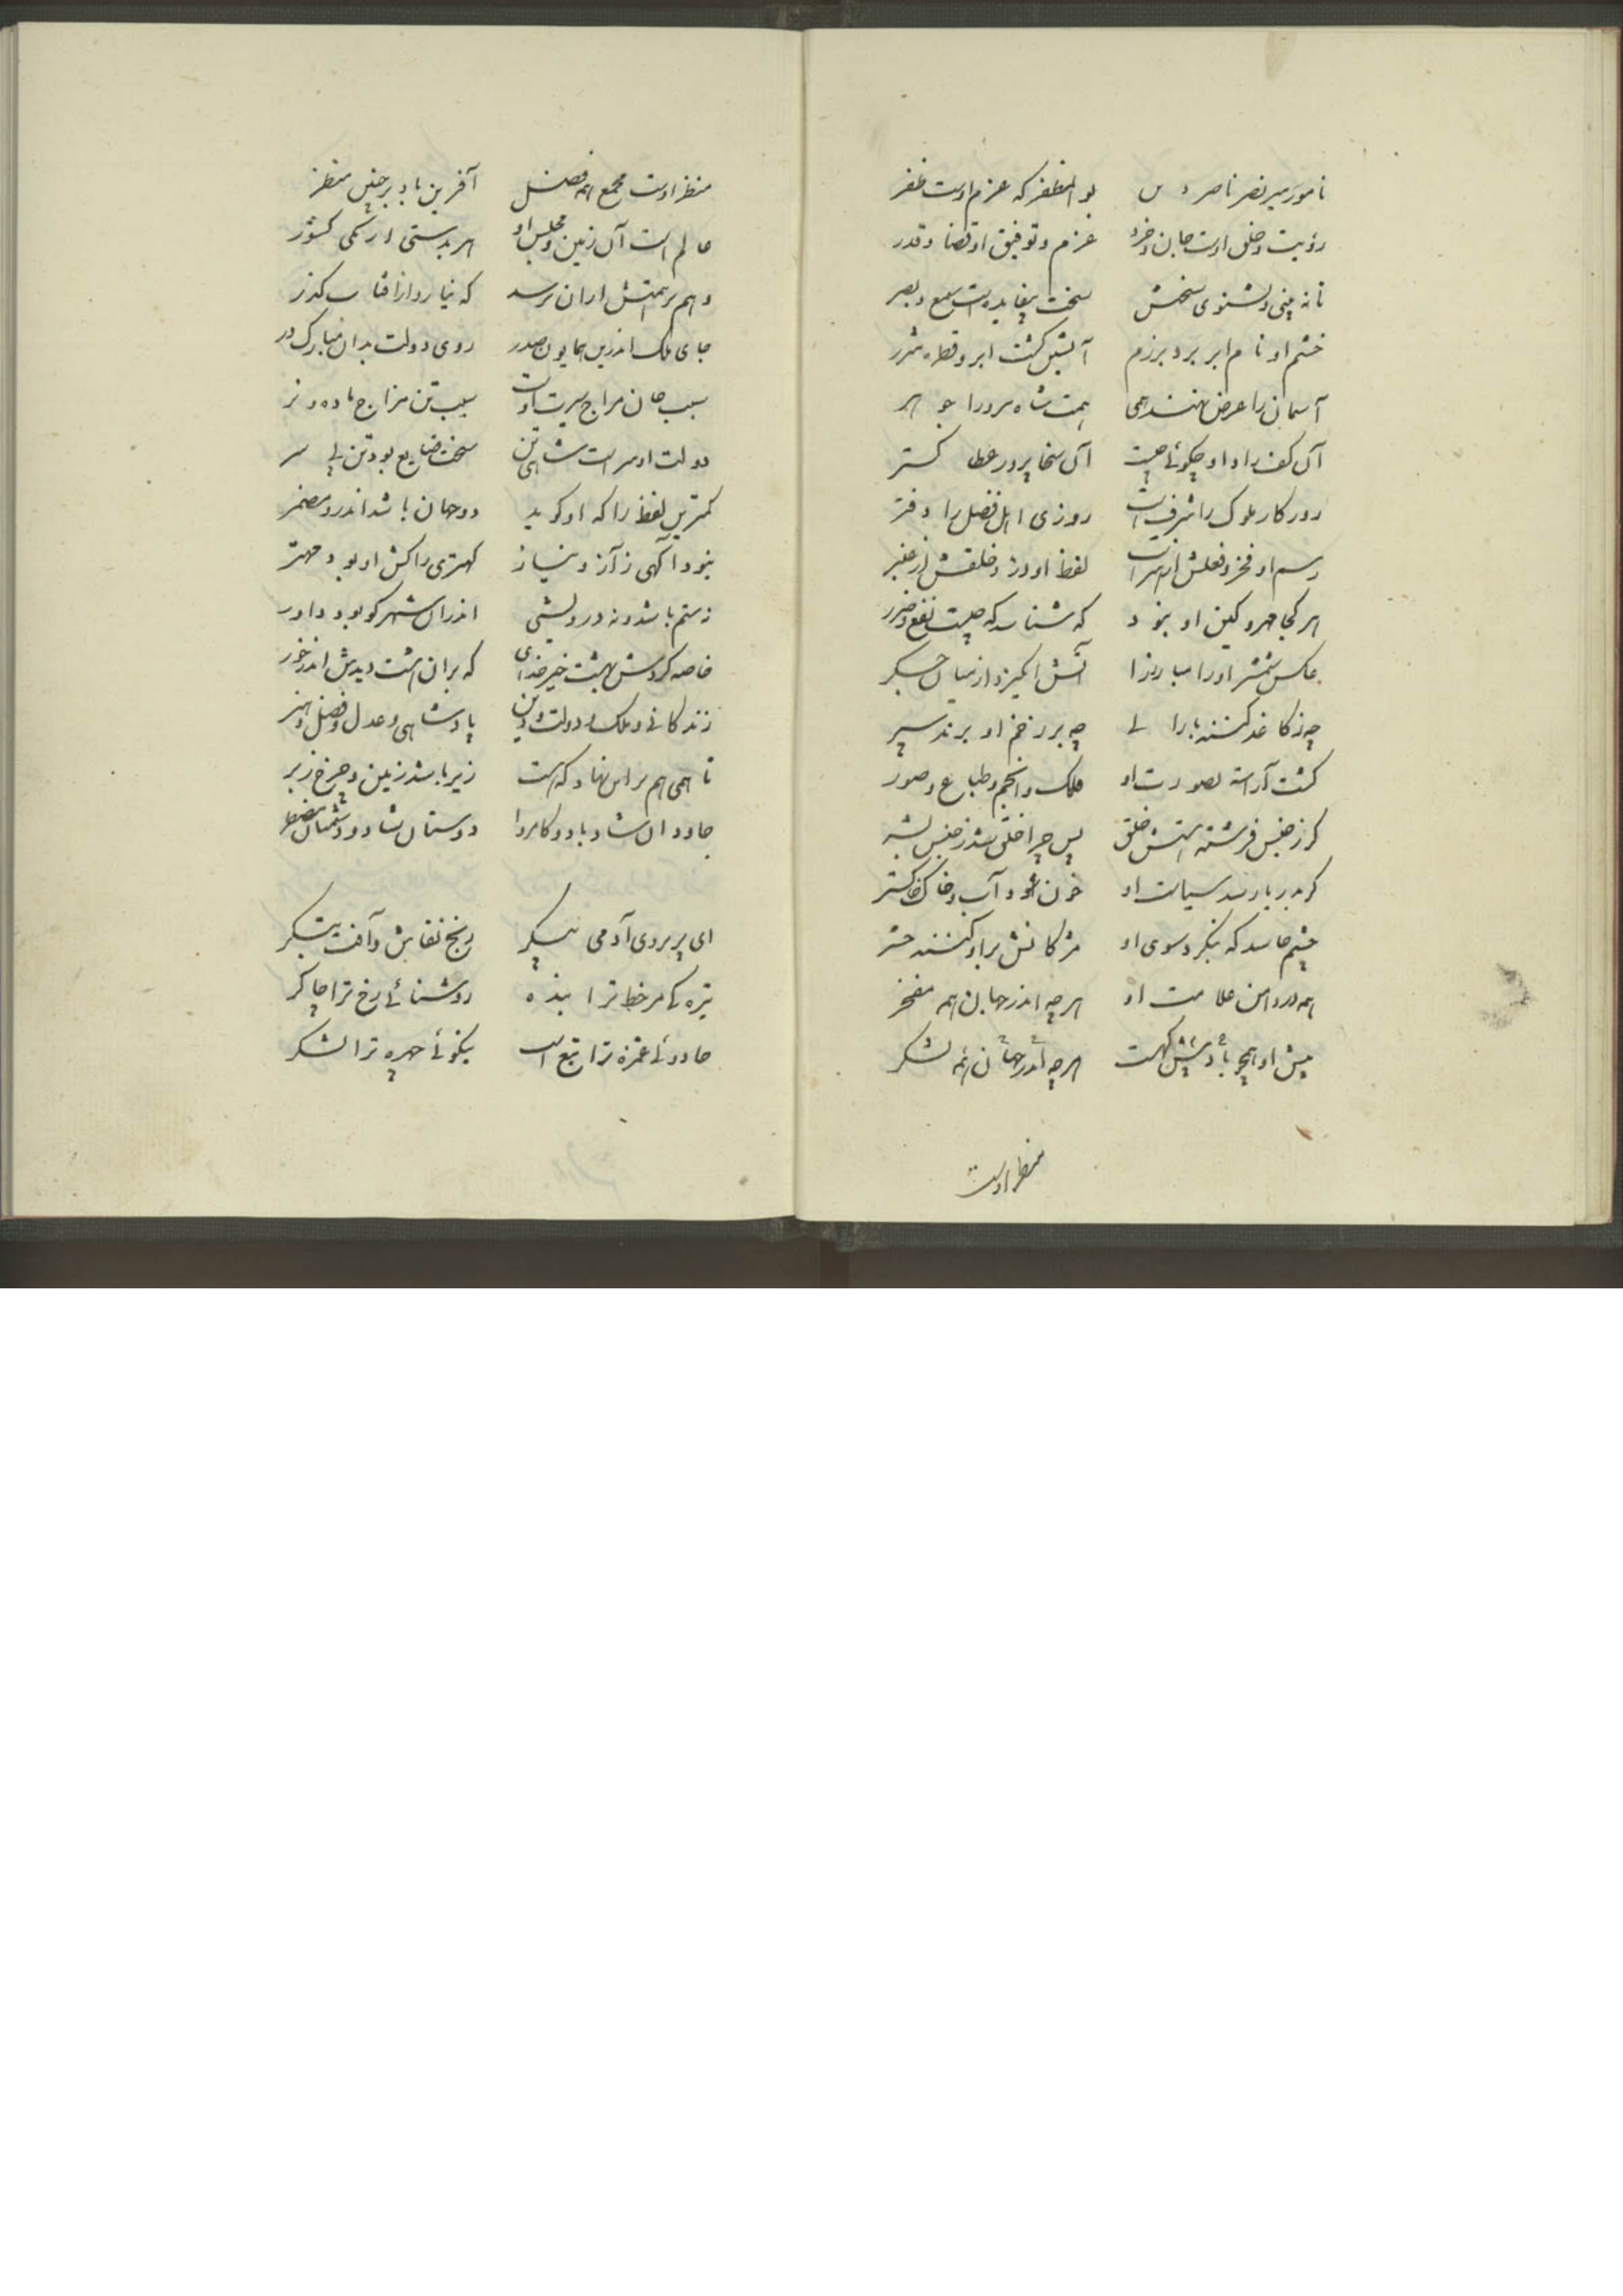 نامور میر نصر ناصر دین بو المظفر که عزم اوست ظفر
رؤیت و خلق اوست جان و خرد عزم و توفیق او قضا و قدر
تا نه بینی و نشنوی سخنش سخت بیفایده است سمع و بصر
خشم او نام ابر برد برزم آتشین گشت ابر و قطره شرر
آسمان را عرض نهند همی همت شاه مرورا جوهر
آن کف راد او چکوئی چیست آن سخا پرور عطا کستر
روزکار ملوک را شرف است روزی اهل فضل را دفتر
رسم او فخر و فعلش لفظ او در و خلقش از عنبر
هر کجا مهر و کین او نبود که شناسد که چیست نفع و ضرر
عکس شمشیر او را مبارز را آتش انکیزد از میان جکر
چه ز کاغذ کنند بارا نی چه بر زخم او برند سپر
کشت آراسته بصورت او فلک و انجم و طباع و صور
کر ز جنس فرشته هستش خلق پس چرا خلق شد ز جنس بشر
کر بدریا رسد سیاست او خون شود آب و خاک خاکستر
چشم حاسد که بنکرد سوی او مژکانش براو کنند حشر
همه در دامن علامت او هر چه اندر جهان همه مفخر
پیش او همچو باد پیش کهست هر چه اندر جهان همه لشکر
منظر اوست
منظر اوست مجمع همه فضل آفرین باد بر چنین منظر
عالم است آن زمین و مجلس او هر بدستی ازو یکی کشور
وهم بر همتش از آن نرسد که نیارد از آفتاب کذر
جای ملک اندرین همایون صدر روی دولت بدان مبارک در
سبب جان مزاج سیرت اوست سبب تن مزاج ماده و نر
دولت او سر است شاهی تن سخت ضایع بود تن بی سر
کمترین لفظ را که او کوید دو جهان باشد اندرو مضمر
نبود آکهی ز آز و نیاز کهتری را کش او بود مهتر
نه ستم باشد و نه درویشی اندر آن شهر کو بود داور
خاصه کردش بهشت چیز خدای که بران هشت دیدش اندر خور
زندکانی و ملک و دولت و دین پادشاهی و عدل و فضل و هنر
تا همی هم بر این نهاد که هست زیر باشد زمین و چرخ زبر
جاودان شاد باد و کامروا دوستان شاد و دشمنان مضطر
ای پریروی آدمی پیکر رنج نقاش و آفت بتکر
تیره کی مر خط ترا بنده روشنائی رخ ترا چاکر
جادوئی غمزه ترا تبع است نیکوئی چهره ترا لشکر